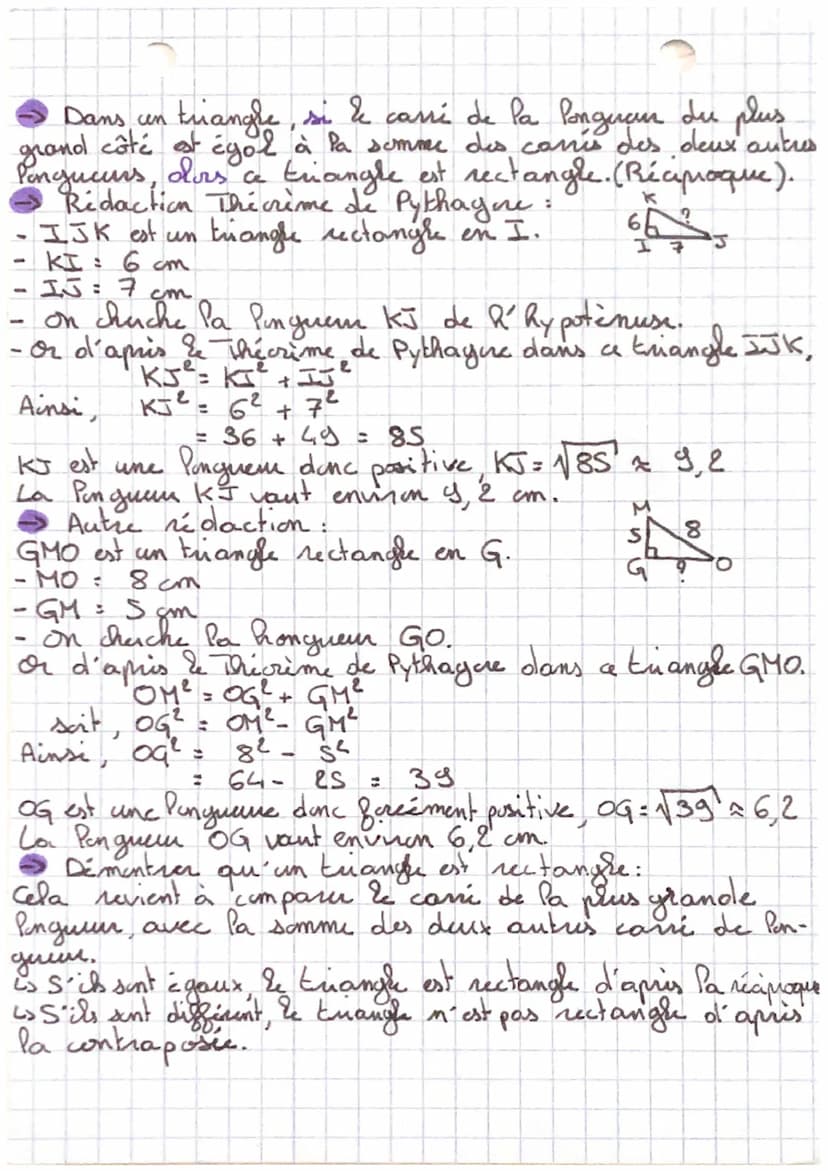 → Dans un triangle, si le carré de la longueur du plus
grand côté est égal à la somme des carrés des deux autres
longueurs, alors ce triangle est rectangle. (Réciproque).
→ Rédaction Théorème de Pythagore :
- IJK est un triangle rectangle en I.
K
6 ?
I 7 J
- KI = 6 cm
- IJ = 7 cm
- On cherche la longueur KJ de l'hypoténuse.
- Or d'après le Théorème de Pythagore dans ce triangle IJK,
KJ² = KI² + IJ²
Ainsi, KJ² = 6² + 7²
= 36 + 49 = 85
KJ est une longueur donc positive, KJ = √85 ≈ 9,2
La longueur KJ vaut environ 9,2 cm.
→ Autre rédaction :
GMO est un triangle rectangle en G.
M
5 8
G ? O
- MO = 8 cm
- GM = 5 cm
- On cherche la longueur GO.
Or d'après le Théorème de Pythagore dans ce triangle GMO.
OM² = OG² + GM²
soit, OG² = OM² - GM²
Ainsi, OG² = 8² - 5²
= 64 - 25 = 39
OG est une longueure donc forcément positive, OG = √39 ≈ 6,2
La longueur OG vaut environ 6,2 cm.
→ Démontrer qu'un triangle est rectangle :
Cela revient à comparer le carré de la plus grande
longueur, avec la somme des deux autres carré de lon-
gueur.
↳ S'ils sont égaux, le triangle est rectangle d'après la réciproque
↳ S'ils sont différent, le triangle n'est pas rectangle d'après
la contraposée.